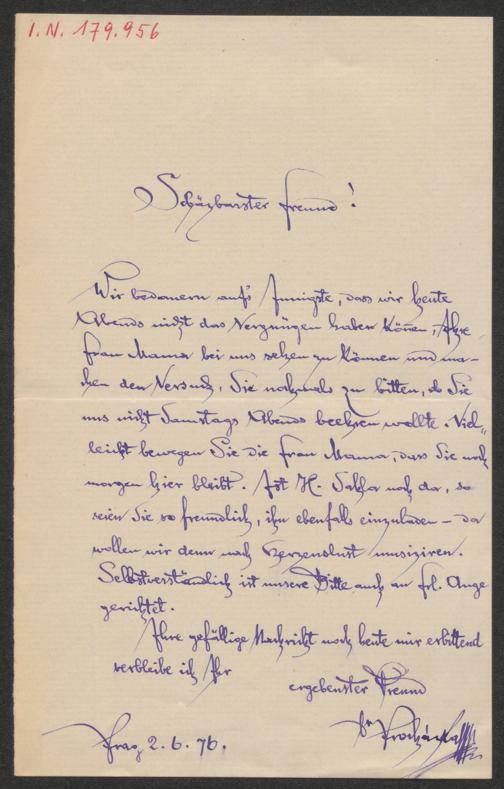 I.N. 179.956
Schäzbarster Freund!
Wir bedauern auf's Innigste, dass wir heute
Abends nicht das Vergnügen haben können, Ihre
Frau Mama bei uns sehen zu können und ma-
chen den Versuch, Sie nochmals zu bitten, ob Sie
uns nicht Samstags Abends beehren wollte. Viel-
leicht bewegen Sie die Frau Mama, dass Sie noch
morgen hier bleibt. Ist H. noch da, so
seien Sie so freundlich, ihn ebenfalls einzuladen – da
wollen wir denn nach Herzenslust musiziren.
Selbstverständlich ist unsere Bitte auch an Frl.
gerichtet.
Ihre gefällige Nachricht noch heute mir erbittend
verbleibe ich Ihr
ergebenster Freund
Dr Procházka
Prag 2.6.76.